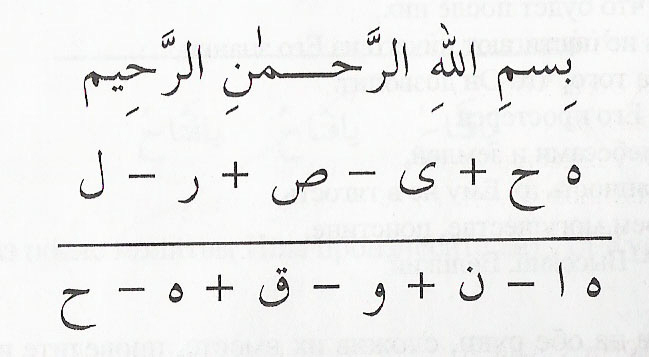 بِسمِ اللهِ الرَّحـــمٰنِ الرَّحِيم
ه ح + ى – ص + ر – ل
ه ا – ن + و – ق + ه – ح